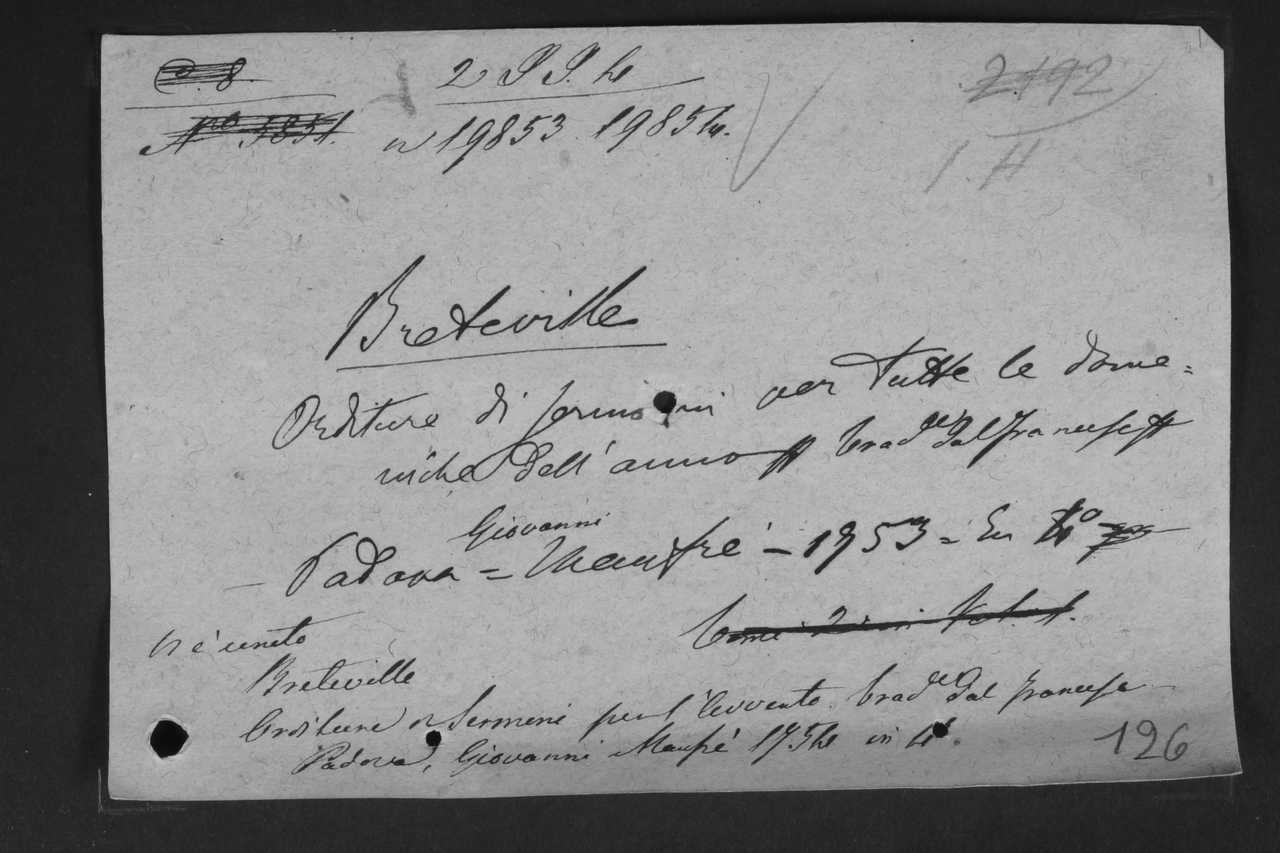 C. 8
2 P P. 4
2192
No 5851.
n 19853 19854.
1. H
Breteville
Orditure di sermoni per tutte le dome=
niche dell' anno trad.e dal francese
Giovanni
Padova = Manfrè - 1753 = in 4o
Tomi 2 in Vol. 1.
vi è unito
Breteville
Orditure sermoni per l'Avvento trad.e dal francese
Padova, Giovanni Manfrè 1754 in 4o.
126